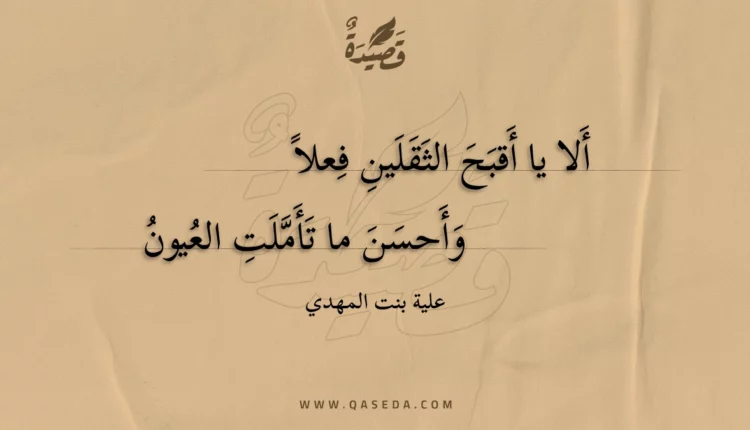 قَصِيْدَةٌ
أَلا يا أَقبَحَ الثَقَلَينِ فِعلاً
وَأَحسَنَ ما تَأَمَّلَتِ العُيونُ
علية بنت المهدي
WWW.QASEDA.COM